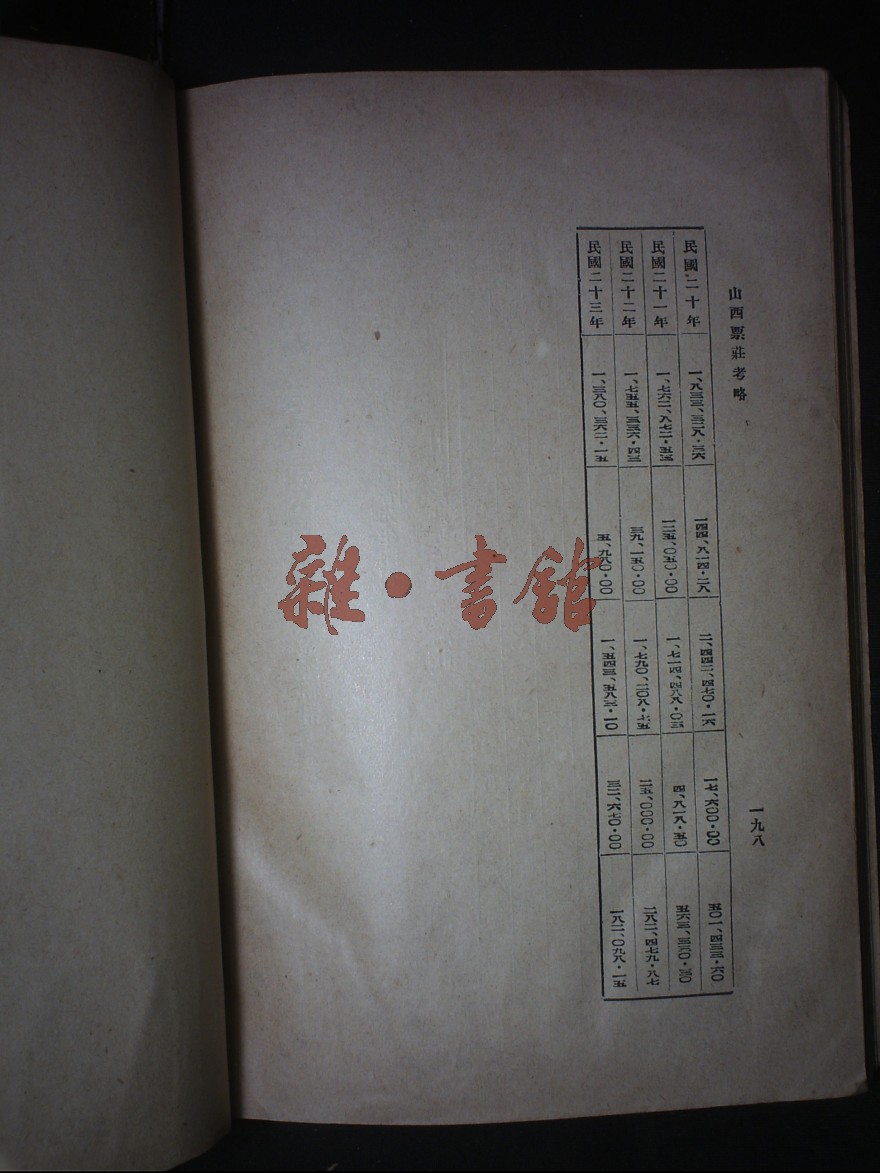 山西票莊考略 一九八
民國二十年 一、八三三、三二八・三六 一四四、八一四・二八 二、四四二、四七〇・一六 一七、六〇〇・〇〇 五〇一、四三三・六〇
民國二十一年 一、七六二、八七二・五三 一二五、〇五〇・〇〇 一、七一四、四八八・〇三 四、八一八・五〇 五六三、三三〇・三〇
民國二十二年 一、七五五、三三六・四三 三九、一五〇・〇〇 一、七九〇、二〇八・七五 二五、〇〇〇・〇〇 二八二、四七九・八七
民國二十三年 一、三八〇、三六二・一五 五、九八〇・〇〇 一、五四三、五八三・一〇 三二、六七〇・〇〇 一八二、〇九八・一五
雜・書館